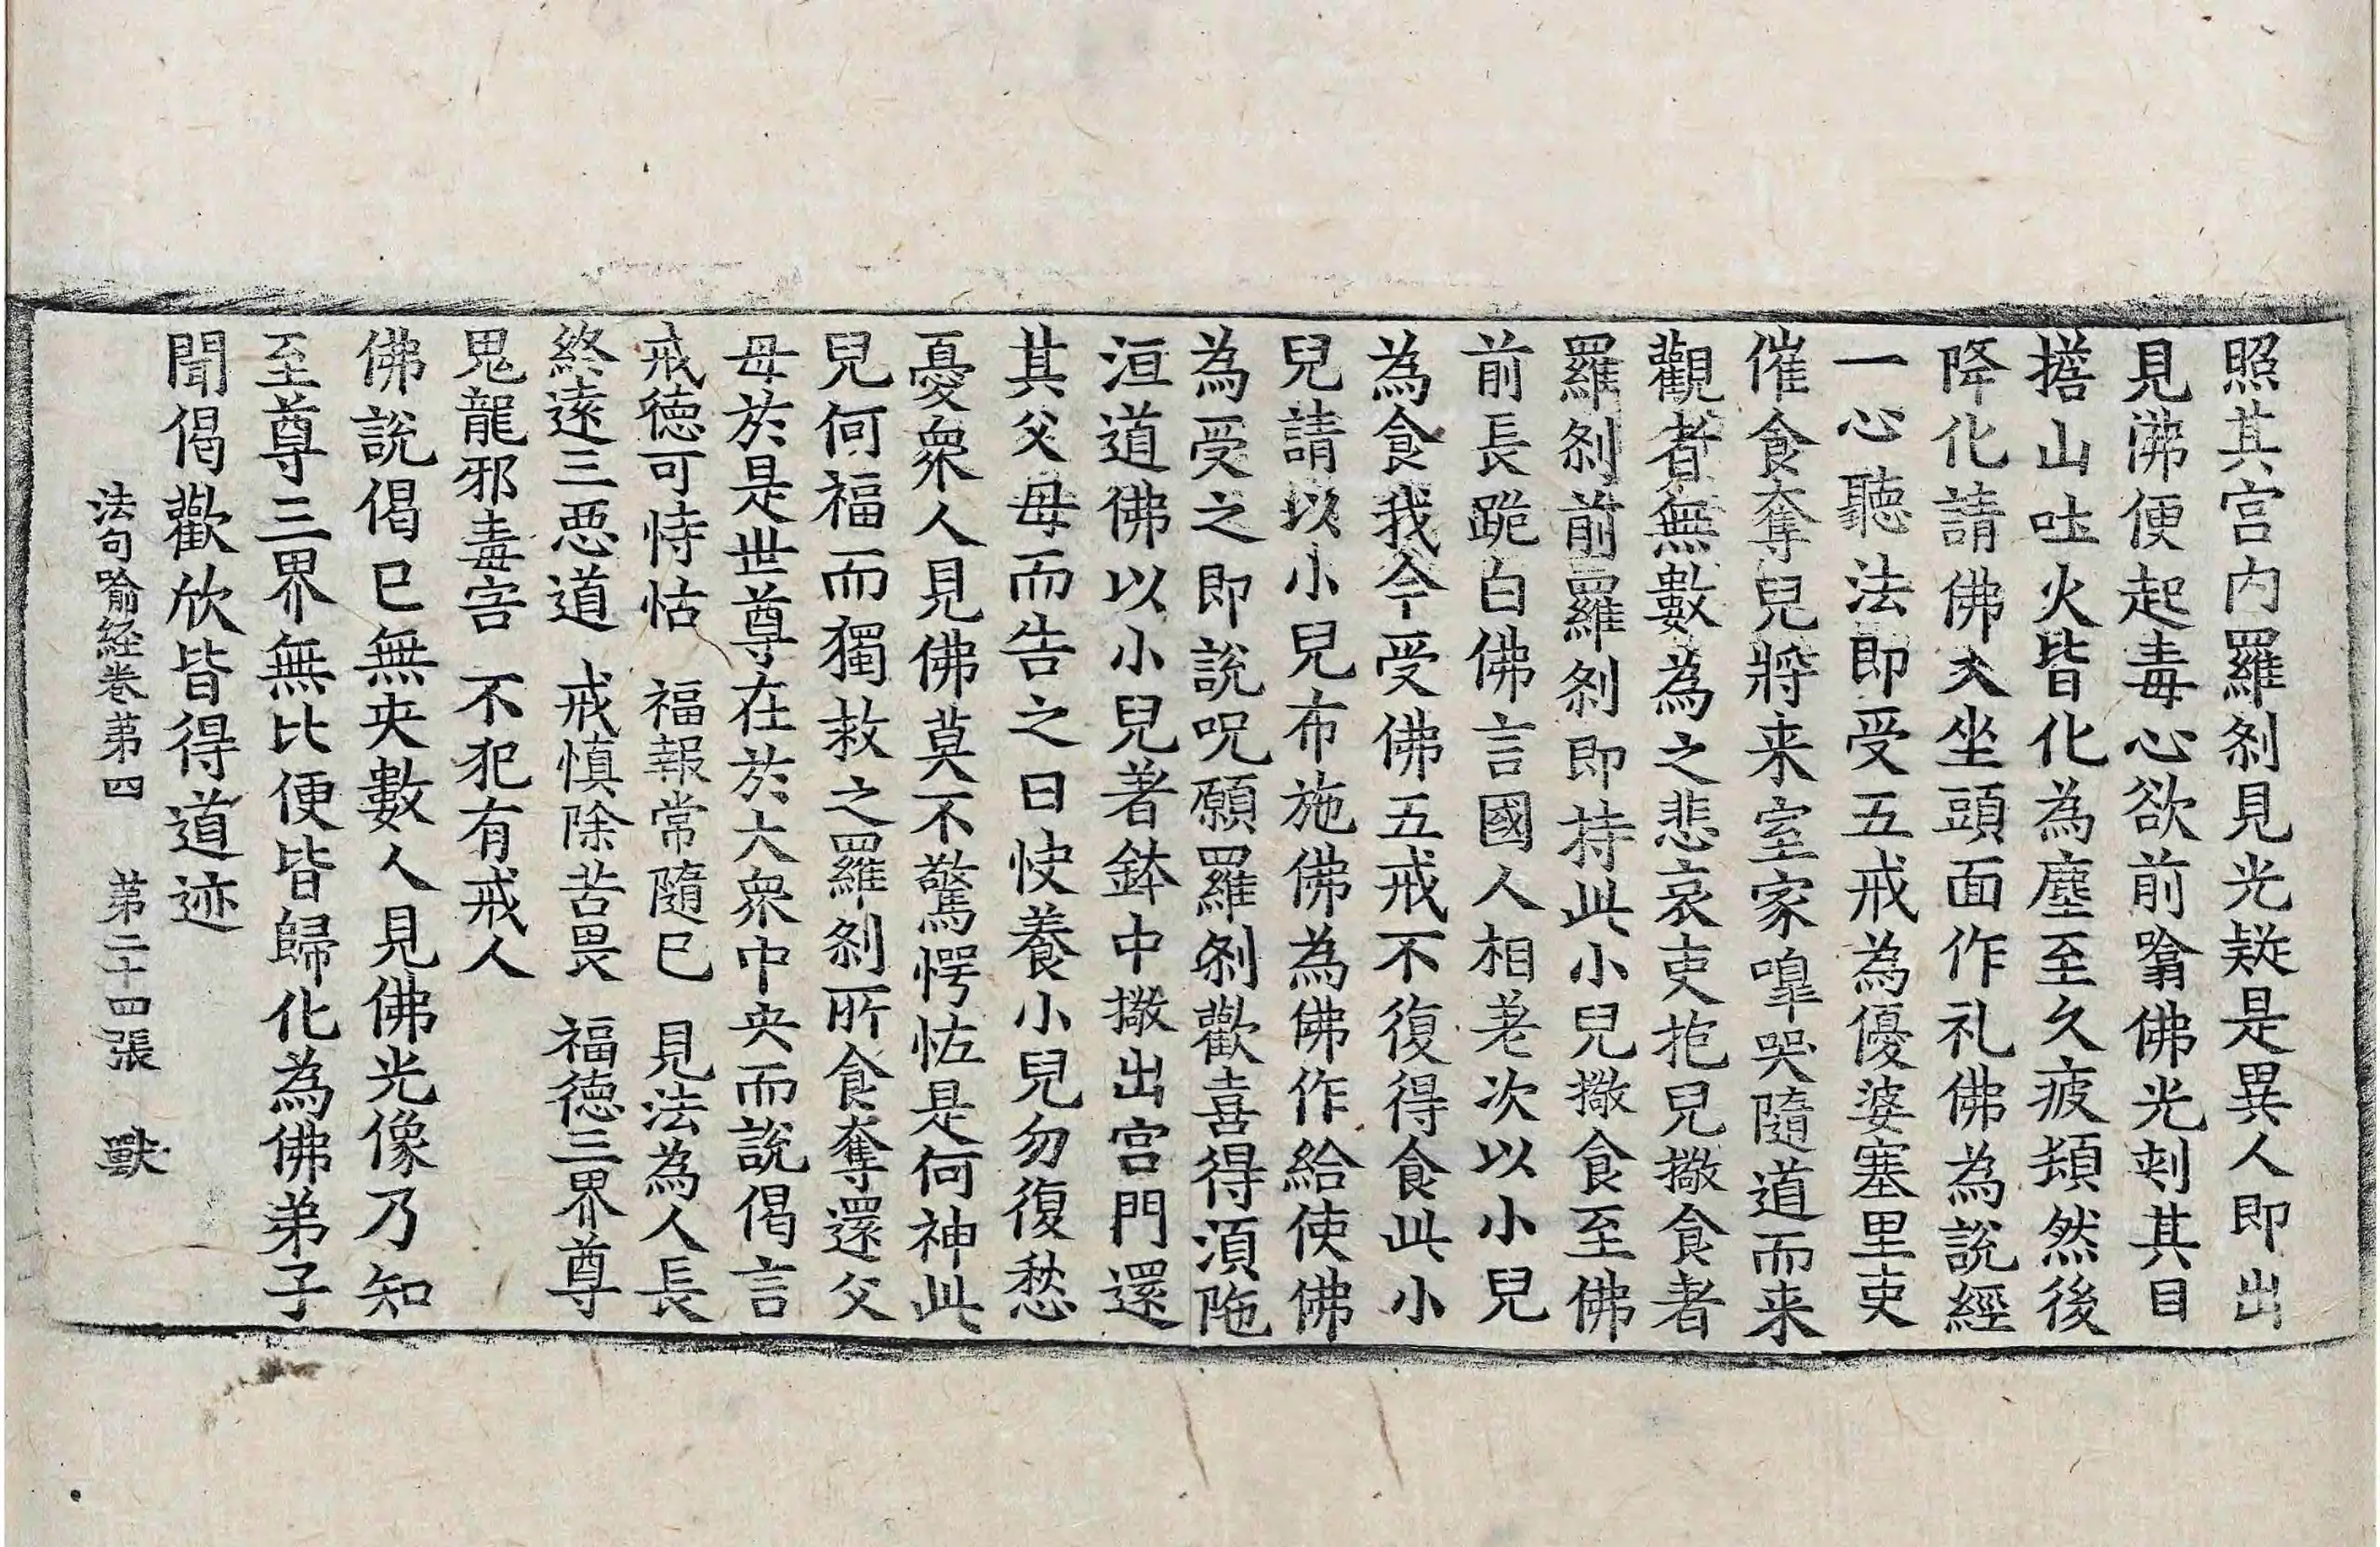 照其宫内羅剎見光疑是異人即出
見沸便起毒心欲前噏佛光刺其目
擔山吐火皆化為塵至久疲頓然後
降化請佛入坐頭面作礼佛為說經
一心聽法即受五戒為優婆塞里吏
催食奪兒將来室家嘷哭隨道而来
觀者無數為之悲哀吏抱兒擻食者
羅剎前羅剎即持此小兒擻食至佛
前長跪白佛言國人相差次以小兒
為食我今受佛五戒不復得食此小
兒請以小兒布施佛為佛作給使佛
為受之即說呪願羅剎歡喜得湏陁
洹道佛以小兒著鉢中擻出宫門還
其父母而告之曰快養小兒勿復愁
憂衆人見佛莫不驚愕怪是何神此
兒何福而獨救之羅剎所食奪還父
母於是世尊在於大衆中央而說偈言
戒德可恃怙　福報常隨已　見法為人長
終逺三惡道　戒慎除苦畏　福德三界尊
鬼龍邪毒害　不犯有戒人
佛說偈已無央數人見佛光像乃知
至尊三界無比便皆歸化為佛弟子
聞偈歡欣皆得道迹
法句喻經卷第四　第二十四張　獸